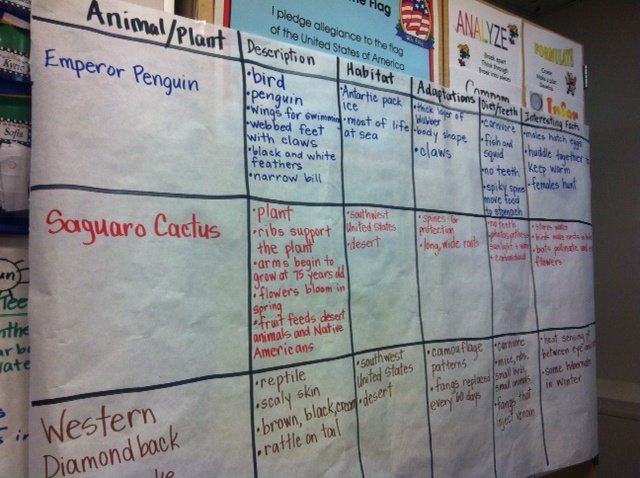 the Flag
I pledge allegiance to the flag
of the United States of America
ANALYZE
Break apart
Think through
Break into pieces
FORMULATE
Animal/Plant
Description
Habitat
Adaptations
Diet/Teeth
Interesting Facts
Emperor Penguin
•bird
•penguin
•wings for swimming
•webbed feet
with claws
•black and white
feathers
•narrow bill
•Antartic pack
ice
•most of life
at sea
•thick layer of
blubber
•body shape
•claws
•carnivore
•fish and
squid
•no teeth
•spiky spine
move food
to stomach
•males hatch eggs
•huddle together
keep warm
•females hunt
Saguaro Cactus
•plant
•ribs support
the plant
•arms begin to
grow at 75 years old
•flowers bloom in
spring
•fruit feeds desert
animals and Native
Americans
•southwest
United States
•desert
•spines for
protection
•long, wide roots
•no teeth
•stores water
•bats pollinate
flowers
Western
Diamondback
•reptile
•scaly skin
•brown, black, cream
•rattle on tail
•southwest
United States
•desert
•camouflage
patterns
•fangs replaced
every 60 days
•carnivore
•mice, rats,
small birds,
small animals
•fangs that
inject venom
•heat sensing
between eye
•some hibernate
in winter